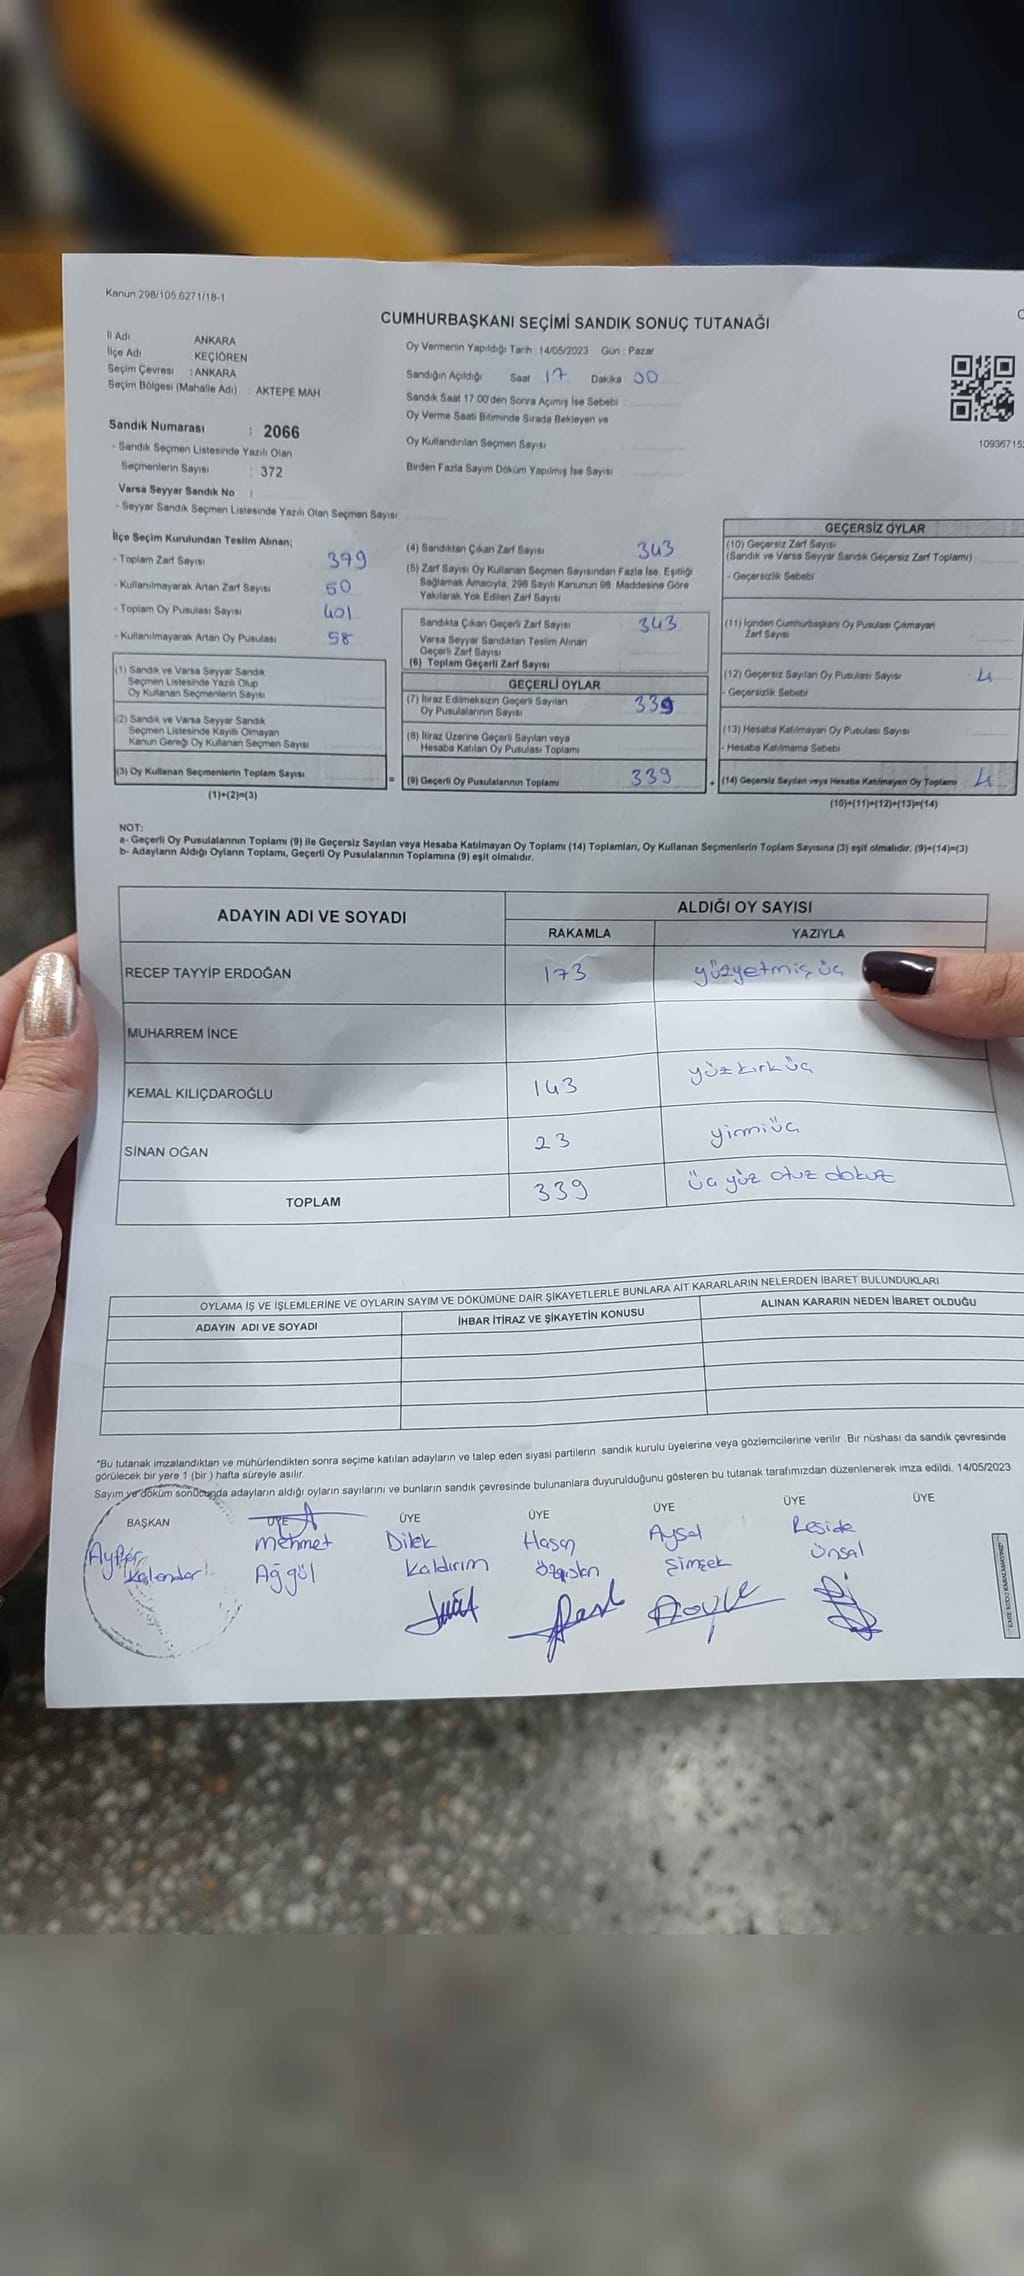 Kanun:298/105.6271/18-1
CUMHURBAŞKANI SEÇİMİ SANDIK SONUÇ TUTANAĞI
İl Adı ANKARA
İlçe Adı KEÇİÖREN
Seçim Çevresi : ANKARA
Seçim Bölgesi (Mahalle Adı) : AKTEPE MAH
Oy Vermenin Yapıldığı Tarih : 14/05/2023 Gün : Pazar
Sandığın Açıldığı Saat 17 Dakika 00
Sandık Saat 17.00'den Sonra Açımış İse Sebebi
Oy Verme Saati Bitiminde Sırada Bekleyen ve
Oy Kullandırılan Seçmen Sayısı
Birden Fazla Sayım Döküm Yapılmış İse Sayısı
10936715
Sandık Numarası : 2066
- Sandık Seçmen Listesinde Yazılı Olan
Seçmenlerin Sayısı : 372
Varsa Seyyar Sandık No :
- Seyyar Sandık Seçmen Listesinde Yazılı Olan Seçmen Sayısı
İlçe Seçim Kurulundan Teslim Alınan;
- Toplam Zarf Sayısı 379
- Kullanılmayarak Artan Zarf Sayısı 50
- Toplam Oy Pusulası Sayısı 401
- Kullanılmayarak Artan Oy Pusulası 58
(1) Sandık ve Varsa Seyyar Sandık
Seçmen Listesinde Yazılı Olup
Oy Kullanan Seçmenlerin Sayısı
(2) Sandık ve Varsa Seyyar Sandık
Seçmen Listesinde Kayıtlı Olmayan
Kanun Gereği Oy Kullanan Seçmen Sayısı
(3) Oy Kullanan Seçmenlerin Toplam Sayısı =
(1)+(2)=(3)
(4) Sandıktan Çıkan Zarf Sayısı 343
(5) Zarf Sayısı Oy Kullanan Seçmen Sayısından Fazla İse, Eşitliği
Sağlamak Amacıyla, 298 Sayılı Kanunun 98. Maddesine Göre
Yakılarak Yok Edilen Zarf Sayısı
Sandıkta Çıkan Geçerli Zarf Sayısı 343
Varsa Seyyar Sandıktan Teslim Alınan
Geçerli Zarf Sayısı
(6) Toplam Geçerli Zarf Sayısı
GEÇERLİ OYLAR
(7) İtiraz Edilmeksizin Geçerli Sayılan
Oy Pusulalarının Sayısı 339
(8) İtiraz Üzerine Geçerli Sayılan veya
Hesaba Katılan Oy Pusulası Toplamı
(9) Geçerli Oy Pusulalarının Toplamı 339 +
GEÇERSİZ OYLAR
(10) Geçersiz Zarf Sayısı
(Sandık ve Varsa Seyyar Sandık Geçersiz Zarf Toplamı)
- Geçersizlik Sebebi
(11) İçinden Cumhurbaşkanı Oy Pusulası Çıkmayan
Zarf Sayısı
(12) Geçersiz Sayılan Oy Pusulası Sayısı 4
- Geçersizlik Sebebi
(13) Hesaba Katılmayan Oy Pusulası Sayısı
- Hesaba Katılmama Sebebi
(14) Geçersiz Sayılan veya Hesaba Katılmayan Oy Toplamı 4
(10)+(11)+(12)+(13)=(14)
NOT:
a- Geçerli Oy Pusulalarının Toplamı (9) ile Geçersiz Sayılan veya Hesaba Katılmayan Oy Toplamı (14) Toplamları, Oy Kullanan Seçmenlerin Toplam Sayısına (3) eşit olmalıdır. (9)+(14)=(3)
b- Adayların Aldığı Oyların Toplamı, Geçerli Oy Pusulalarının Toplamına (9) eşit olmalıdır.
ADAYIN ADI VE SOYADI ALDIĞI OY SAYISI
RAKAMLA YAZIYLA
RECEP TAYYİP ERDOĞAN 173 yüzyetmiş üç
MUHARREM İNCE
KEMAL KILIÇDAROĞLU 143 yüzkırküç
SİNAN OĞAN 23 yirmiüç
TOPLAM 339 üç yüz otuz dokuz
OYLAMA İŞ VE İŞLEMLERİNE VE OYLARIN SAYIM VE DÖKÜMÜNE DAİR ŞİKAYETLERLE BUNLARA AİT KARARLARIN NELERDEN İBARET BULUNDUKLARI
ADAYIN ADI VE SOYADI İHBAR İTİRAZ VE ŞİKAYETİN KONUSU ALINAN KARARIN NEDEN İBARET OLDUĞU
*Bu tutanak imzalandıktan ve mühürlendikten sonra seçime katılan adayların ve talep eden siyasi partilerin sandık kurulu üyelerine veya gözlemcilerine verilir. Bir nüshası da sandık çevresinde
görülecek bir yere 1 (bir) hafta süreyle asılır.
Sayım ve döküm sonucunda adayların aldığı oyların sayılarını ve bunların sandık çevresinde bulunanlara duyurulduğunu gösteren bu tutanak tarafımızdan düzenlenerek imza edildi. 14/05/2023
BAŞKAN ÜYE ÜYE ÜYE ÜYE ÜYE ÜYE
Kalender Mehmet Dilek Hasan Aysel Reside
Ağgül Kaldırım Şimşek Ünsal